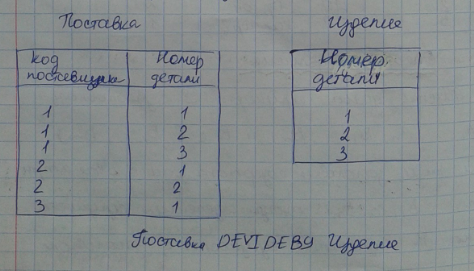 Поставка Изделие
Код Номер Номер
поставщика детали детали
1 1 1
1 2 2
1 3 3
2 1
2 2
3 1
Поставка DEVIDEBY Изделие